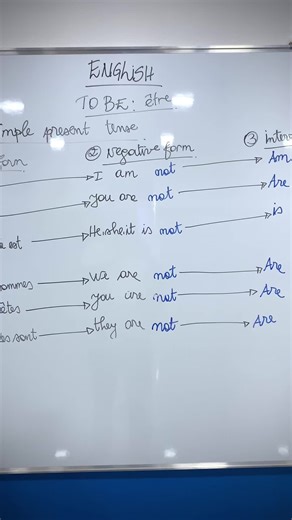 ENGLISH
TO BE: être
imple present tense
form ② negative form ③ Inter
I am not Am
You are not Are
e est He.she.it is not is
sommes we are not Are
êtes you are not Are
es sont they are not Are